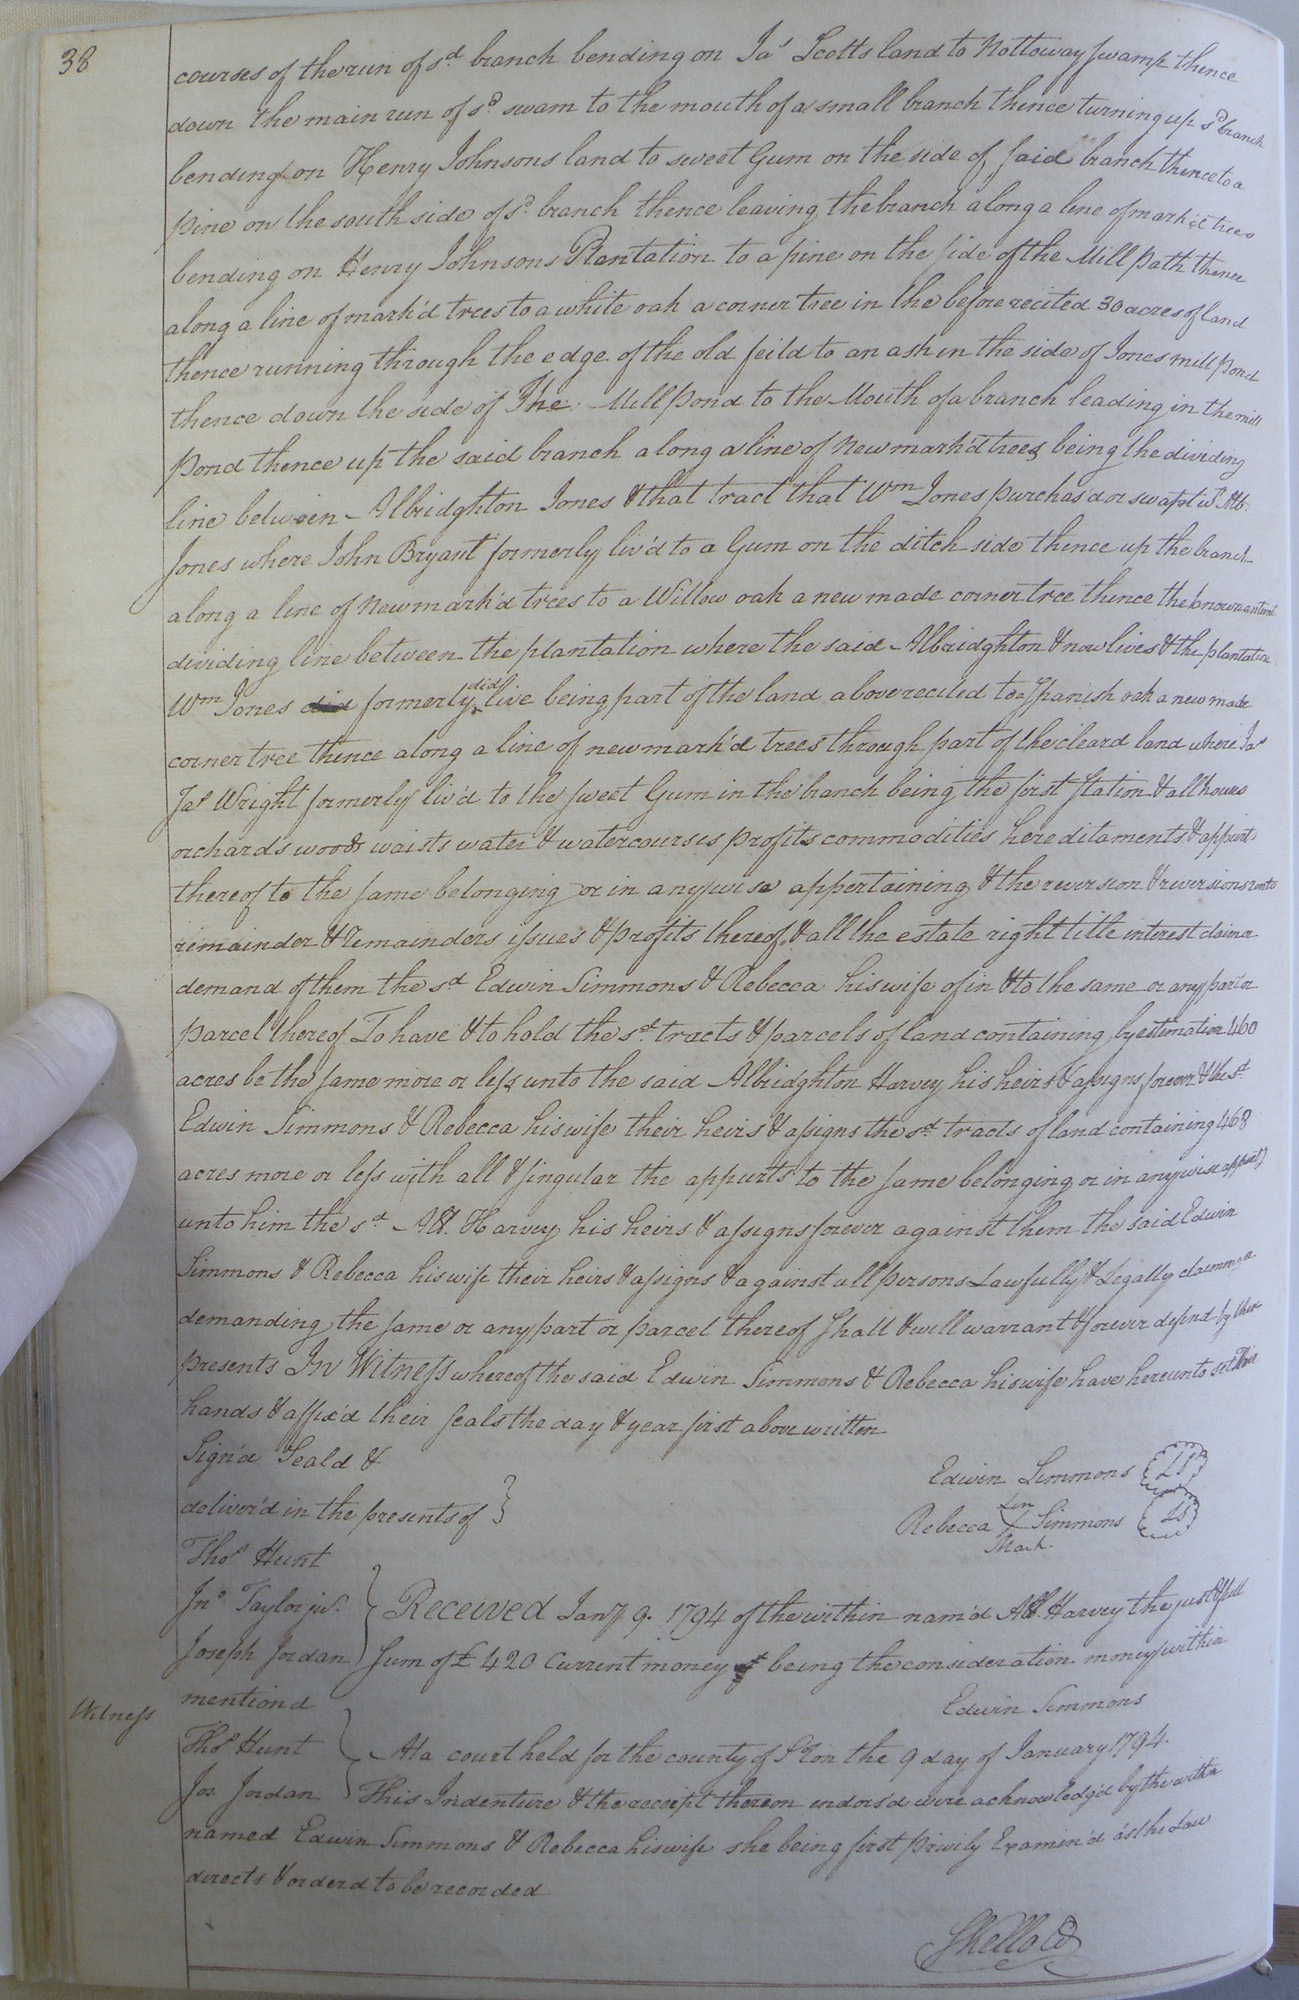 38
courses of the run of sd branch bending on Jas Scotts land to Nottoway swamp thence
down the main run of sd swam to the mouth of a small branch thence turning up sd branch
bending on Henry Johnsons land to sweet Gum on the side of said branch thence to a
pine on the south side of sd branch thence leaving the branch along a line of mark'd trees
bending on Henry Johnsons Plantation to a pine on the side of the Mill path thence
along a line of mark'd trees to a white oak a corner tree in the before recited 30 acres of land
thence running through the edge of the old feild to an ash in the side of Jones mill pond
thence down the side of The Mill pond to the Mouth of a branch leading in the mill
pond thence up the said branch along a line of new mark'd trees being the dividing
line between Albridghton Jones & that tract that Wm Jones purchas'd or swapt wt Alb.
Jones where John Bryant formerly liv'd to a Gum on the ditch side thence up the branch
along a line of new mark'd trees to a Willow oak a new made corner tree thence the known
dividing line between the plantation where the said Albridghton & now lives & the plantation
Wm Jones did formerly did live being part of the land above recited to a Spanish oak a new made
corner tree thence along a line of new mark'd trees through part of the cleard land where Jas
Jas Wright formerly liv'd to the sweet Gum in the branch being the first station & all houses
orchards woods waists water & watercourses profits commodities hereditaments & appurts
thereof to the same belonging or in anywise appertaining & the revirsion & revirsions
remainder & remainders issues & profits thereof & all the estate right title interest claim &
demand of them the sd Edwin Simmons & Rebecca his wife of in & to the same or any part or
parcel thereof To have & to hold the sd tracts & parcels of land containing by estimation 460
acres be the same more or less unto the said Albridghton Harvey his heirs & assigns forever & the sd
Edwin Simmons & Rebecca his wife their heirs & assigns the sd tracts of land containing 468
acres more or less with all & singular the appurts to the same belonging or in anywise
unto him the sd Alb. Harvey his heirs & assigns forever against them the said Edwin
Simmons & Rebecca his wife their heirs & assigns & against all persons Lawfully & Legally claiming or
demanding the same or any part or parcel thereof shall & will warrant & forever defend by these
presents In Witness whereof the said Edwin Simmons & Rebecca his wife have hereunto set their
hands & affix'd their seals the day & year first above written
Sign'd Seald &
deliver'd in the presents of }
Edwin Simmons LS
her
Rebecca X Simmons LS
Mark.
Thos Hunt
Jno Taylor jur.
Joseph Jordan
} Received Jany 9. 1794 of the within nam'd Alb. Harvey the just & full
Sum of £ 420 Current money being the consideration money within
mentiond
Edwin Simmons
Witness
Thos Hunt
Jos. Jordan
At a court held for the county of Soton the 9 day of January 1794.
This Indenture & the receipt thereon endors'd were acknowledg'd by the within
named Edwin Simmons & Rebecca his wife she being first privily Examin'd as the Law
directs & orderd to be recorded